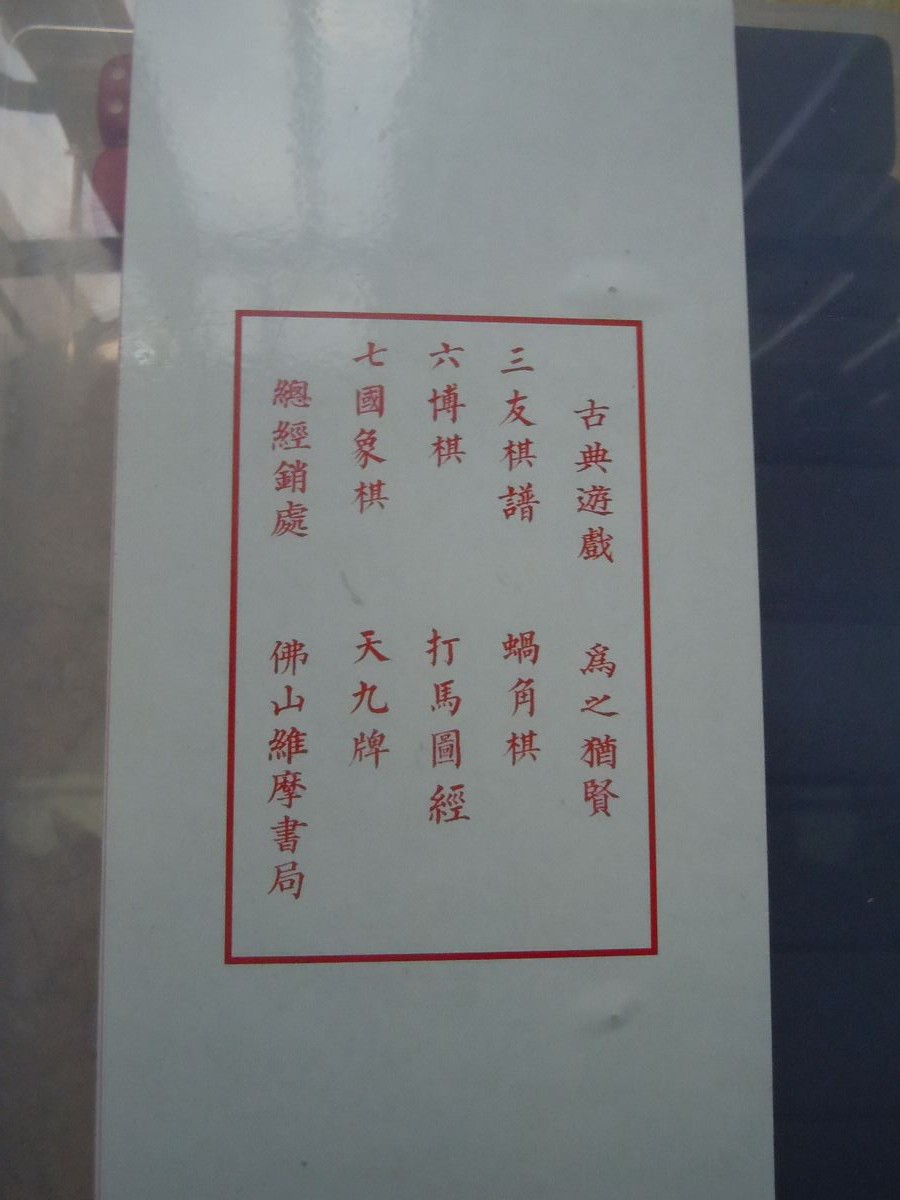 古典遊戲 爲之猶賢
三友棋譜 蝸角棋
六博棋 打馬圖經
七國象棋 天九牌
總經銷處 佛山維摩書局